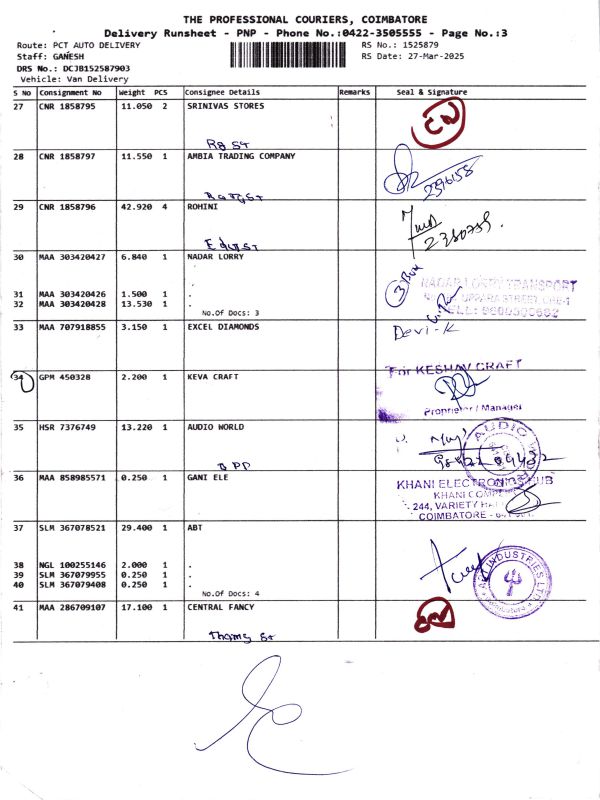 THE PROFESSIONAL COURIERS, COIMBATORE
Delivery Runsheet - PNP - Phone No.:0422-3505555 - Page No.:3
Route: PCT AUTO DELIVERY RS No.: 1525879
Staff: GANESH RS Date: 27-Mar-2025
DRS No.: DCJB152587903
Vehicle: Van Delivery
S No Consignment No Weight PCS Consignee Details Remarks Seal & Signature
27 CNR 1858795 11.050 2 SRINIVAS STORES
CN
RG St
28 CNR 1858797 11.550 1 AMBIA TRADING COMPANY
2396158
29 CNR 1858796 42.920 4 ROHINI
2380799
30 MAA 303420427 6.840 1 NADAR LORRY
3
NADAR LORRY TRANSPORT
UPPARA STREET, CBE-1
31 MAA 303420426 1.500 1 .
32 MAA 303420428 13.530 1 .
No.Of Docs: 3
33 MAA 707918855 3.150 1 EXCEL DIAMONDS
Devi-K
34 GPM 450328 2.200 1 KEVA CRAFT
For KESHAV CRAFT
Proprietor / Manager
35 HSR 7376749 13.220 1 AUDIO WORLD
AUDIO
OPP
36 MAA 858985571 0.250 1 GANI ELE
KHANI ELECTRONICS HUB
KHANI
244, VARIETY
COIMBATORE
37 SLM 367078521 29.400 1 ABT
INDUSTRIES LTD
38 NGL 100255146 2.000 1 .
39 SLM 367079955 0.250 1 .
40 SLM 367079408 0.250 1 .
No.Of Docs: 4
41 MAA 286709107 17.100 1 CENTRAL FANCY
CN
Thomas St